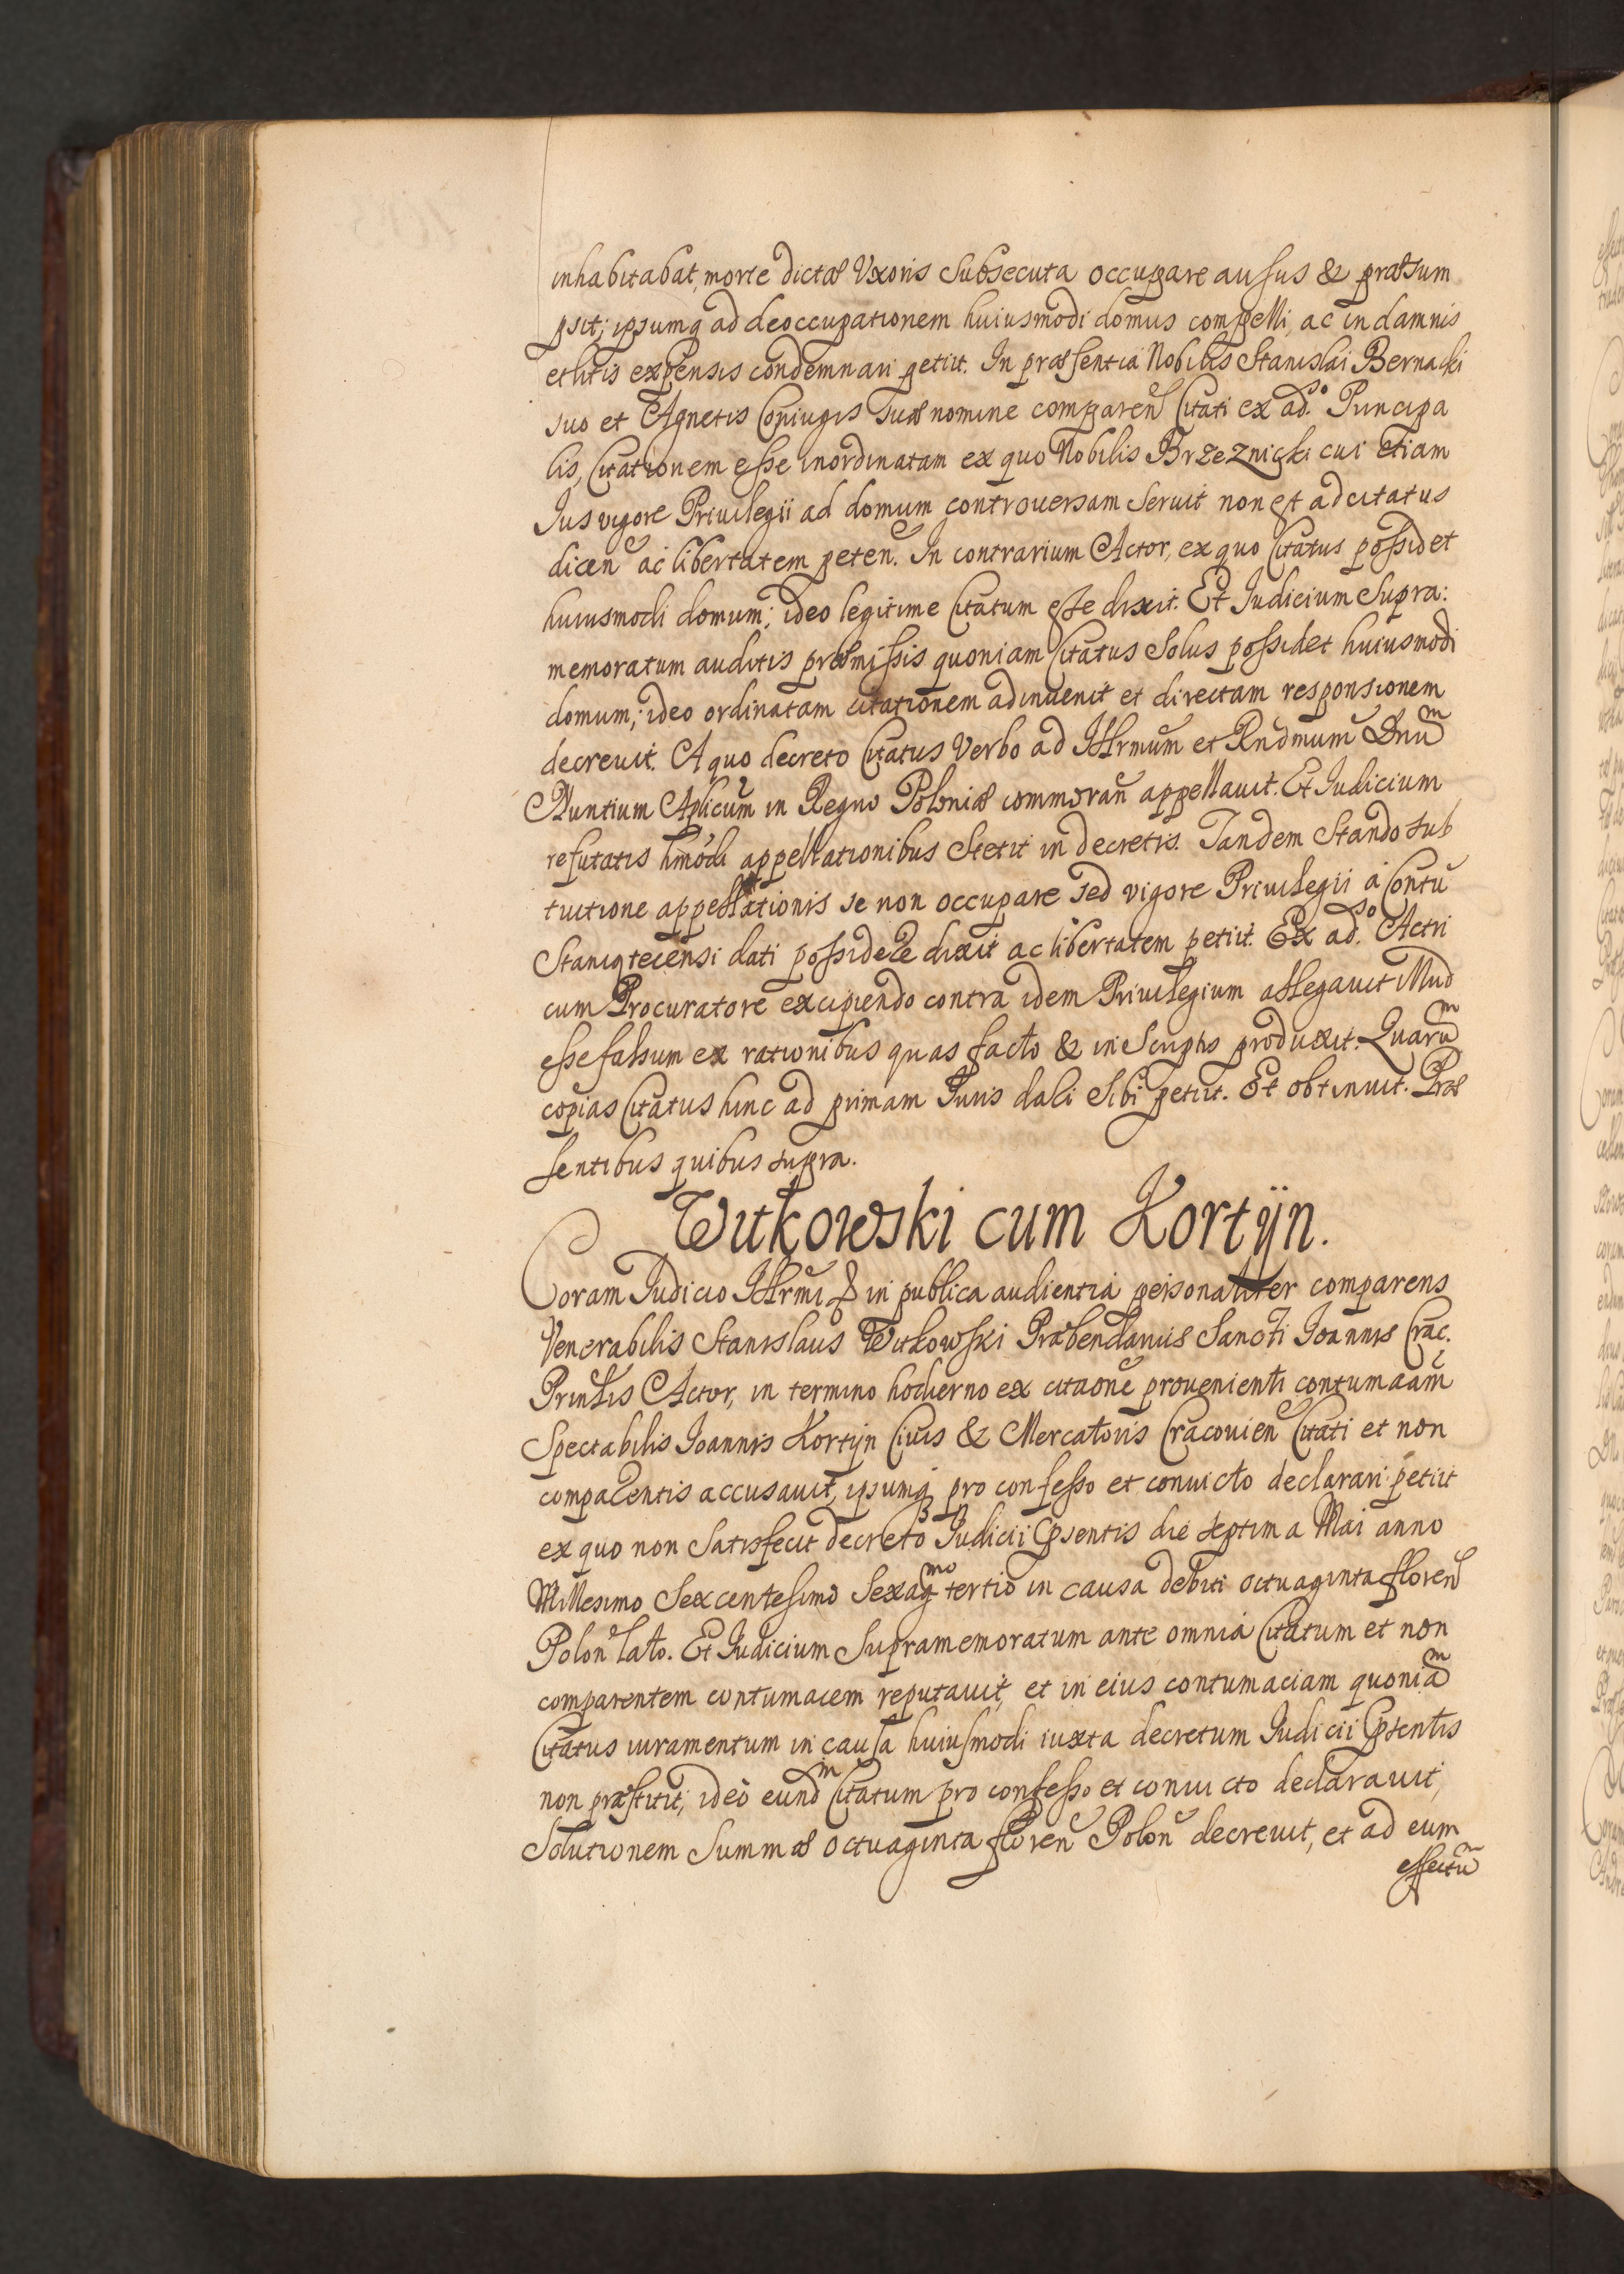 inhabitabat, morte dictæ Uxoris subsecuta occupare ausus & præsum
psit; ipsumq ad deoccupationem huiusmodi domus compelli, ac in damnis
et litis expensis condemnari petiit. In præsentia Nobilis Stanislai Bernacki
suo et Agnetis Coniugis suæ nomine comparen Citati ex ad.so Principa
lis, Citationem esse inordinatam ex quo Nobilis Brzeznicki cui etiam
Ius vigore Privilegii ad domum controversam servit non est adcitatus
dicen ac libertatem peten. In contrarium Actor, ex quo Citatus possidet
huiusmodi domum; ideo legitime Citatum esse dixit. Et Iudicium supra:
memoratum auditis præmissis quoniam Citatus solus possidet huiusmodi
domum; ideo ordinatam citationem adinvenit et directam responsionem
decrevit. A quo decreto Citatus verbo ad Illrmum et Rndmum Dnum
Nuntium Aplicum in Regno Poloniæ commoran appellavit. Et Iudicium
refutatis hmodi appellationibus stetit in decretis. Tandem stando sub
tuitione appellationis se non occupare sed vigore Privilegii a Contu
dati possidere dixit ac libertatem petiit. Ex ad.so Actri
cum Procuratore excipiendo contra idem Privilegium allegavit Illud
esse falsum ex rationibus quas facto & in scriptis produxit. Quarum
copias Citatus hinc ad primam Iuris dali sibi petiit. Et obtinuit. Præ
sentibus quibus supra.
Witkowski cum Kortÿn.
Coram Iudicio Illrmi & in publica audientia personaliter comparens
Venerabilis Stanislaus Witkowski Præbendarius Sancti Ioannis Crac.
Prinlis Actor, in termino hodierno ex citaone provenienti contumaciam
Spectabilis Ioannis Kortÿn Civis & Mercatoris Cracovien Citati et non
comparentis accusavit, ipsumq pro confesso et convicto declarari petiit
ex quo non satisfecit decreto Iudicii Psentis die septima Mai anno
Millesimo sexcentesimo sexagmo tertio in causa debiti octuaginta floren
Polon lato. Et Iudicium supramemoratum ante omnia Citatum et non
comparentem contumacem reputavit, et in eius contumaciam quoniam
Citatus iuramentum in causa huiusmodi iuxta decretum Iudicii Psentis
non præstitit, ideo eundm Citatum pro confesso et convicto declaravit,
Solutionem summæ octuaginta floren Polon decrevit, et ad eum
effectum